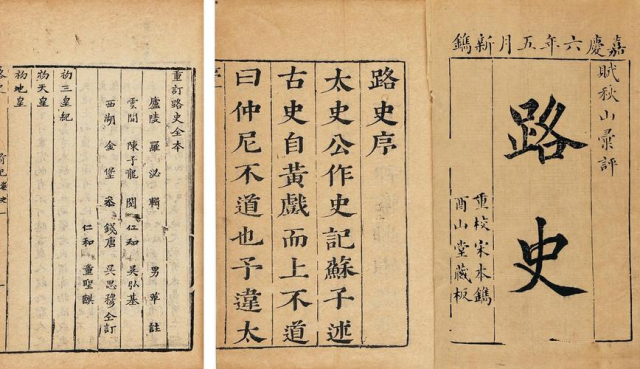 嘉慶六年五月新鐫
賦秋山彙評
路史
重校宋本鐫
酉山堂藏板
路史序
太史公作史記蘇子述
古史自黃戲而上不道
曰仲尼不道也予違太
重訂路史全本
廬陵羅泌輯 男苹註
雲間陳子龍閱 仁和吳弘基
西湖金堡叅 錢唐吳思穆仝訂
仁和董聖麒
初三皇紀
初天皇
初地皇